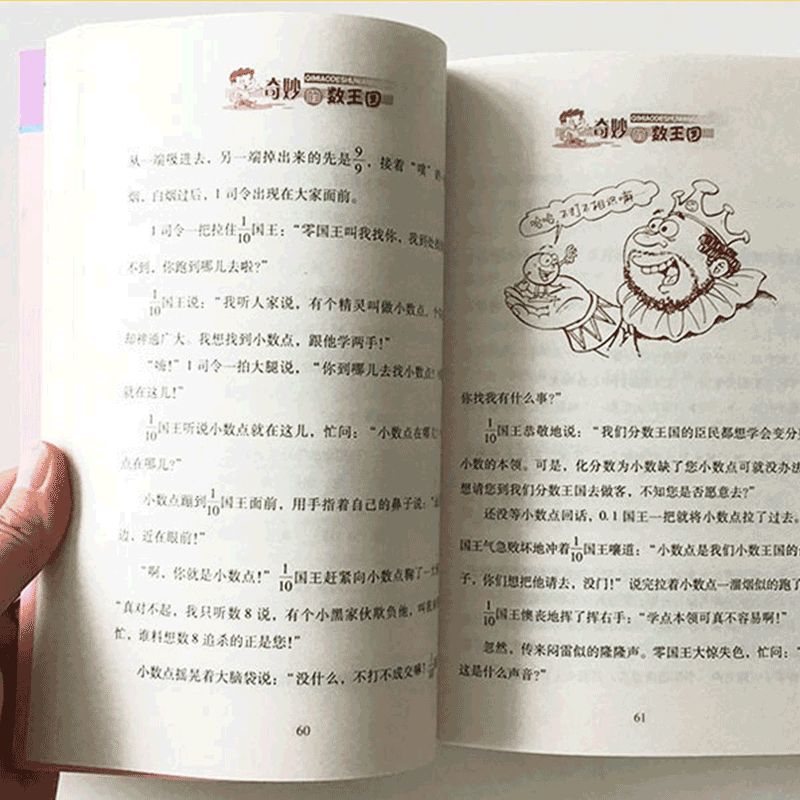 QIMIAODESHUWANG
奇妙的数王国
从一端吸进去，另一端掉出来的先是9/9，接着“噗”的
烟，白烟过后，1司令出现在大家面前。
1司令一把拉住1/10国王：“零国王叫我找你，我到处
不到，你跑到哪儿去啦？”
1/10国王说：“我听人家说，有个精灵叫做小数点，个
却神通广大。我想找到小数点，跟他学两手！”
“嗨！”1司令一拍大腿说，“你到哪儿去找小数点！
就在这儿！”
1/10国王听说小数点就在这儿，忙问：“小数点在哪
点在哪儿？”
小数点蹦到1/10国王面前，用手指着自己的鼻子说：
边，近在眼前！”
“啊，你就是小数点！”1/10国王赶紧向小数点鞠了一
“真对不起，我只听数8说，有个小黑家伙欺负他，叫我
忙，谁料想数8追杀的正是您！”
小数点摇晃着大脑袋说：“没什么，不打不成交嘛！
60
QIMIAODESHUWANG
奇妙的数王国
哈哈，不打不相识嘛
你找我有什么事？”
1/10国王恭敬地说：“我们分数王国的臣民都想学会变分
小数的本领。可是，化分数为小数缺了您小数点可就没办法
想请您到我们分数王国去做客，不知您是否愿意去？”
还没等小数点回话，0.1国王一把就将小数点拉了过去。
国王气急败坏地冲着1/10国王嚷道：“小数点是我们小数王国的
子，你们想把他请去，没门！”说完拉着小数点一溜烟似的跑了
1/10国王懊丧地挥了挥右手：“学点本领可真不容易啊！”
忽然，传来闷雷似的隆隆声。零国王大惊失色，忙问：“
这是什么声音？”
61